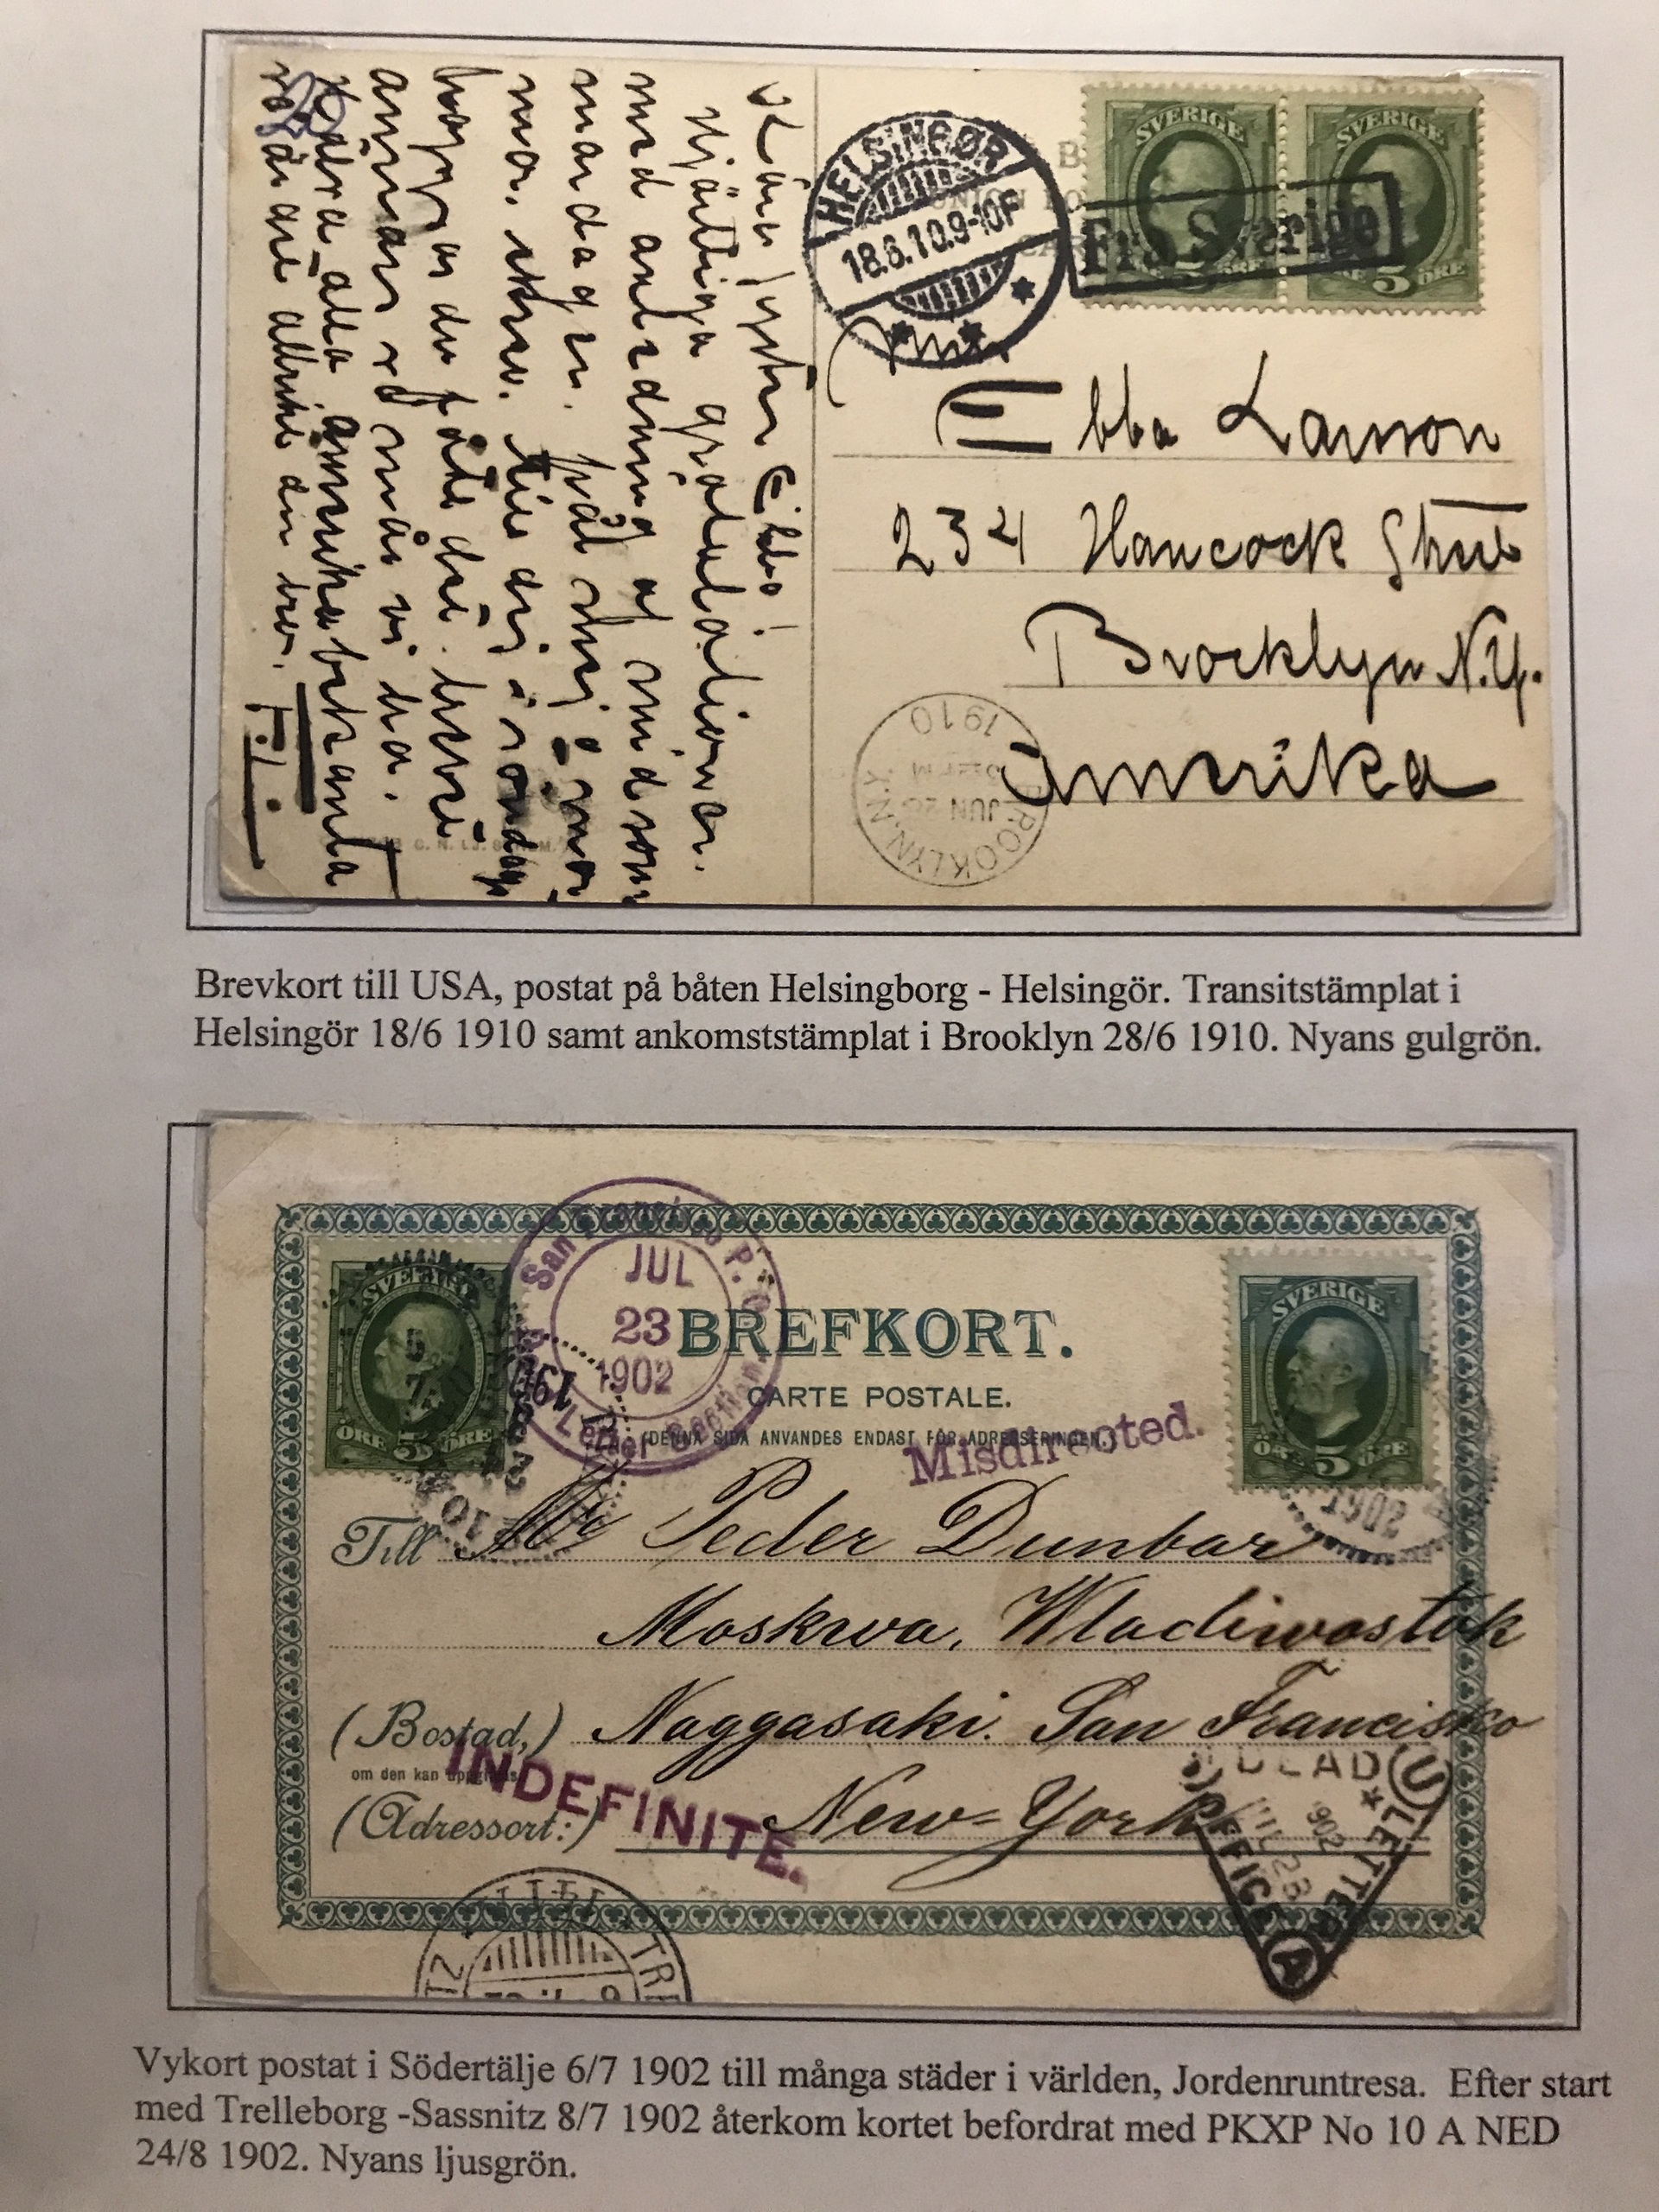 Kära syster Ebba!
Hjärtliga gratulationer
med anledning af midsom
mardagen.
mor. skrev.
hoppas du både det. bevis
annars så mår vi bra.
Hälsa alla amerikabekanta
din bror. H.
HELSINGØR
18.6.10.9-10F
SVERIGE SVERIGE
Fra Sverige
5 ÖRE
Ebba Larsson
234 Hancock Street
Brooklyn N.Y.
Amerika
BROOKLYN, N.Y.
JUN 28
1910
Brevkort till USA, postat på båten Helsingborg - Helsingör. Transitstämplat i
Helsingör 18/6 1910 samt ankomststämplat i Brooklyn 28/6 1910. Nyans gulgrön.
SVERIGE
ÖRE 5 ÖRE
San Francisco P. O.
JUL
23
1902
Letter Section.
BREFKORT.
CARTE POSTALE.
(DENNA SIDA ANVANDES ENDAST FÖR ADRESSERINGEN.)
Misdirected.
SVERIGE
ÖRE 5 ÖRE
1902
Till Mr Peder Dunbar
Moskwa, Wladiwostok
(Bostad,) Naggasaki. San Francisko
om den kan uppgifvas
INDEFINITE.
(Adressort:) New-York
DEAD LETTER OFFICE
U
JUL 23
1902
A
TRE
Vykort postat i Södertälje 6/7 1902 till många städer i världen, Jordenruntresa. Efter start
med Trelleborg -Sassnitz 8/7 1902 återkom kortet befordrat med PKXP No 10 A NED
24/8 1902. Nyans ljusgrön.